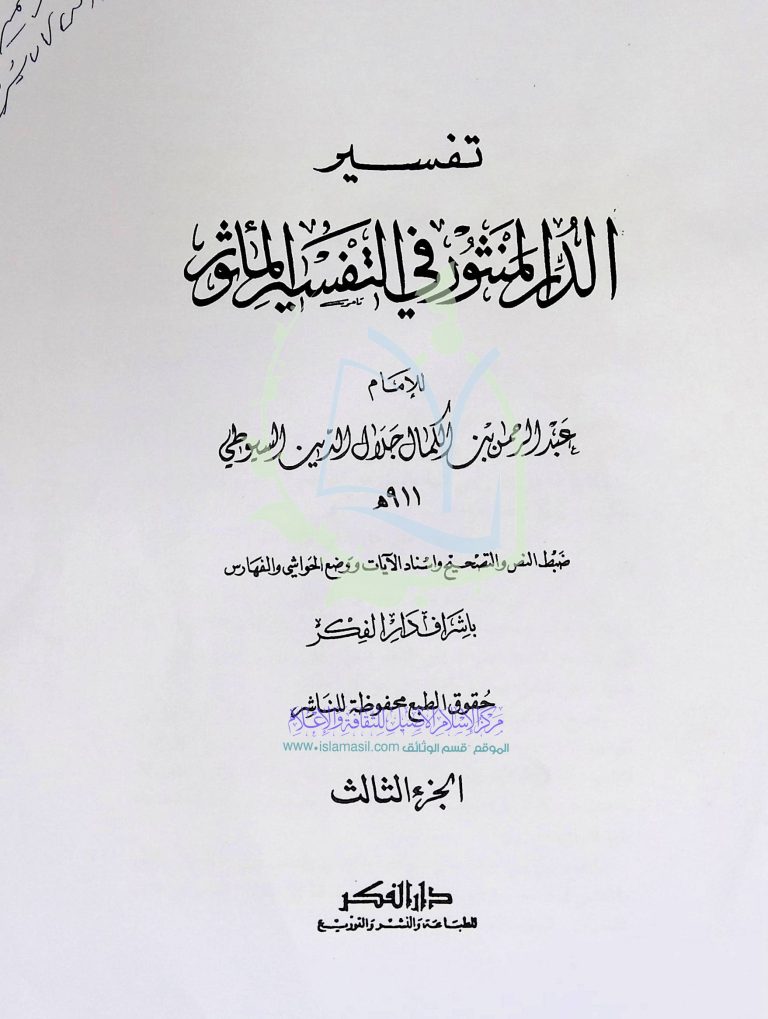 تفسير
الدُّر المَنثُور في التفسير المأثور
للإمَام
عَبْد الرحمٰن بن الكمال جَلال الدّين السيوطي
٩١١ هـ
ضَبْط النص والتصحيح واسناد الآيات ووضع الحواشي والفهارس
باشراف دَار الفِكر
حُقوق الطبع محفوظة للنَاشِر
مركز الإسلام الأصيل للثقافة والإعلام
الموقع -قسم الوثائق www.islamasil.com
الجزء الثالث
دار الفكر
للطبَاعَة وَالنشر وَالتوزيع